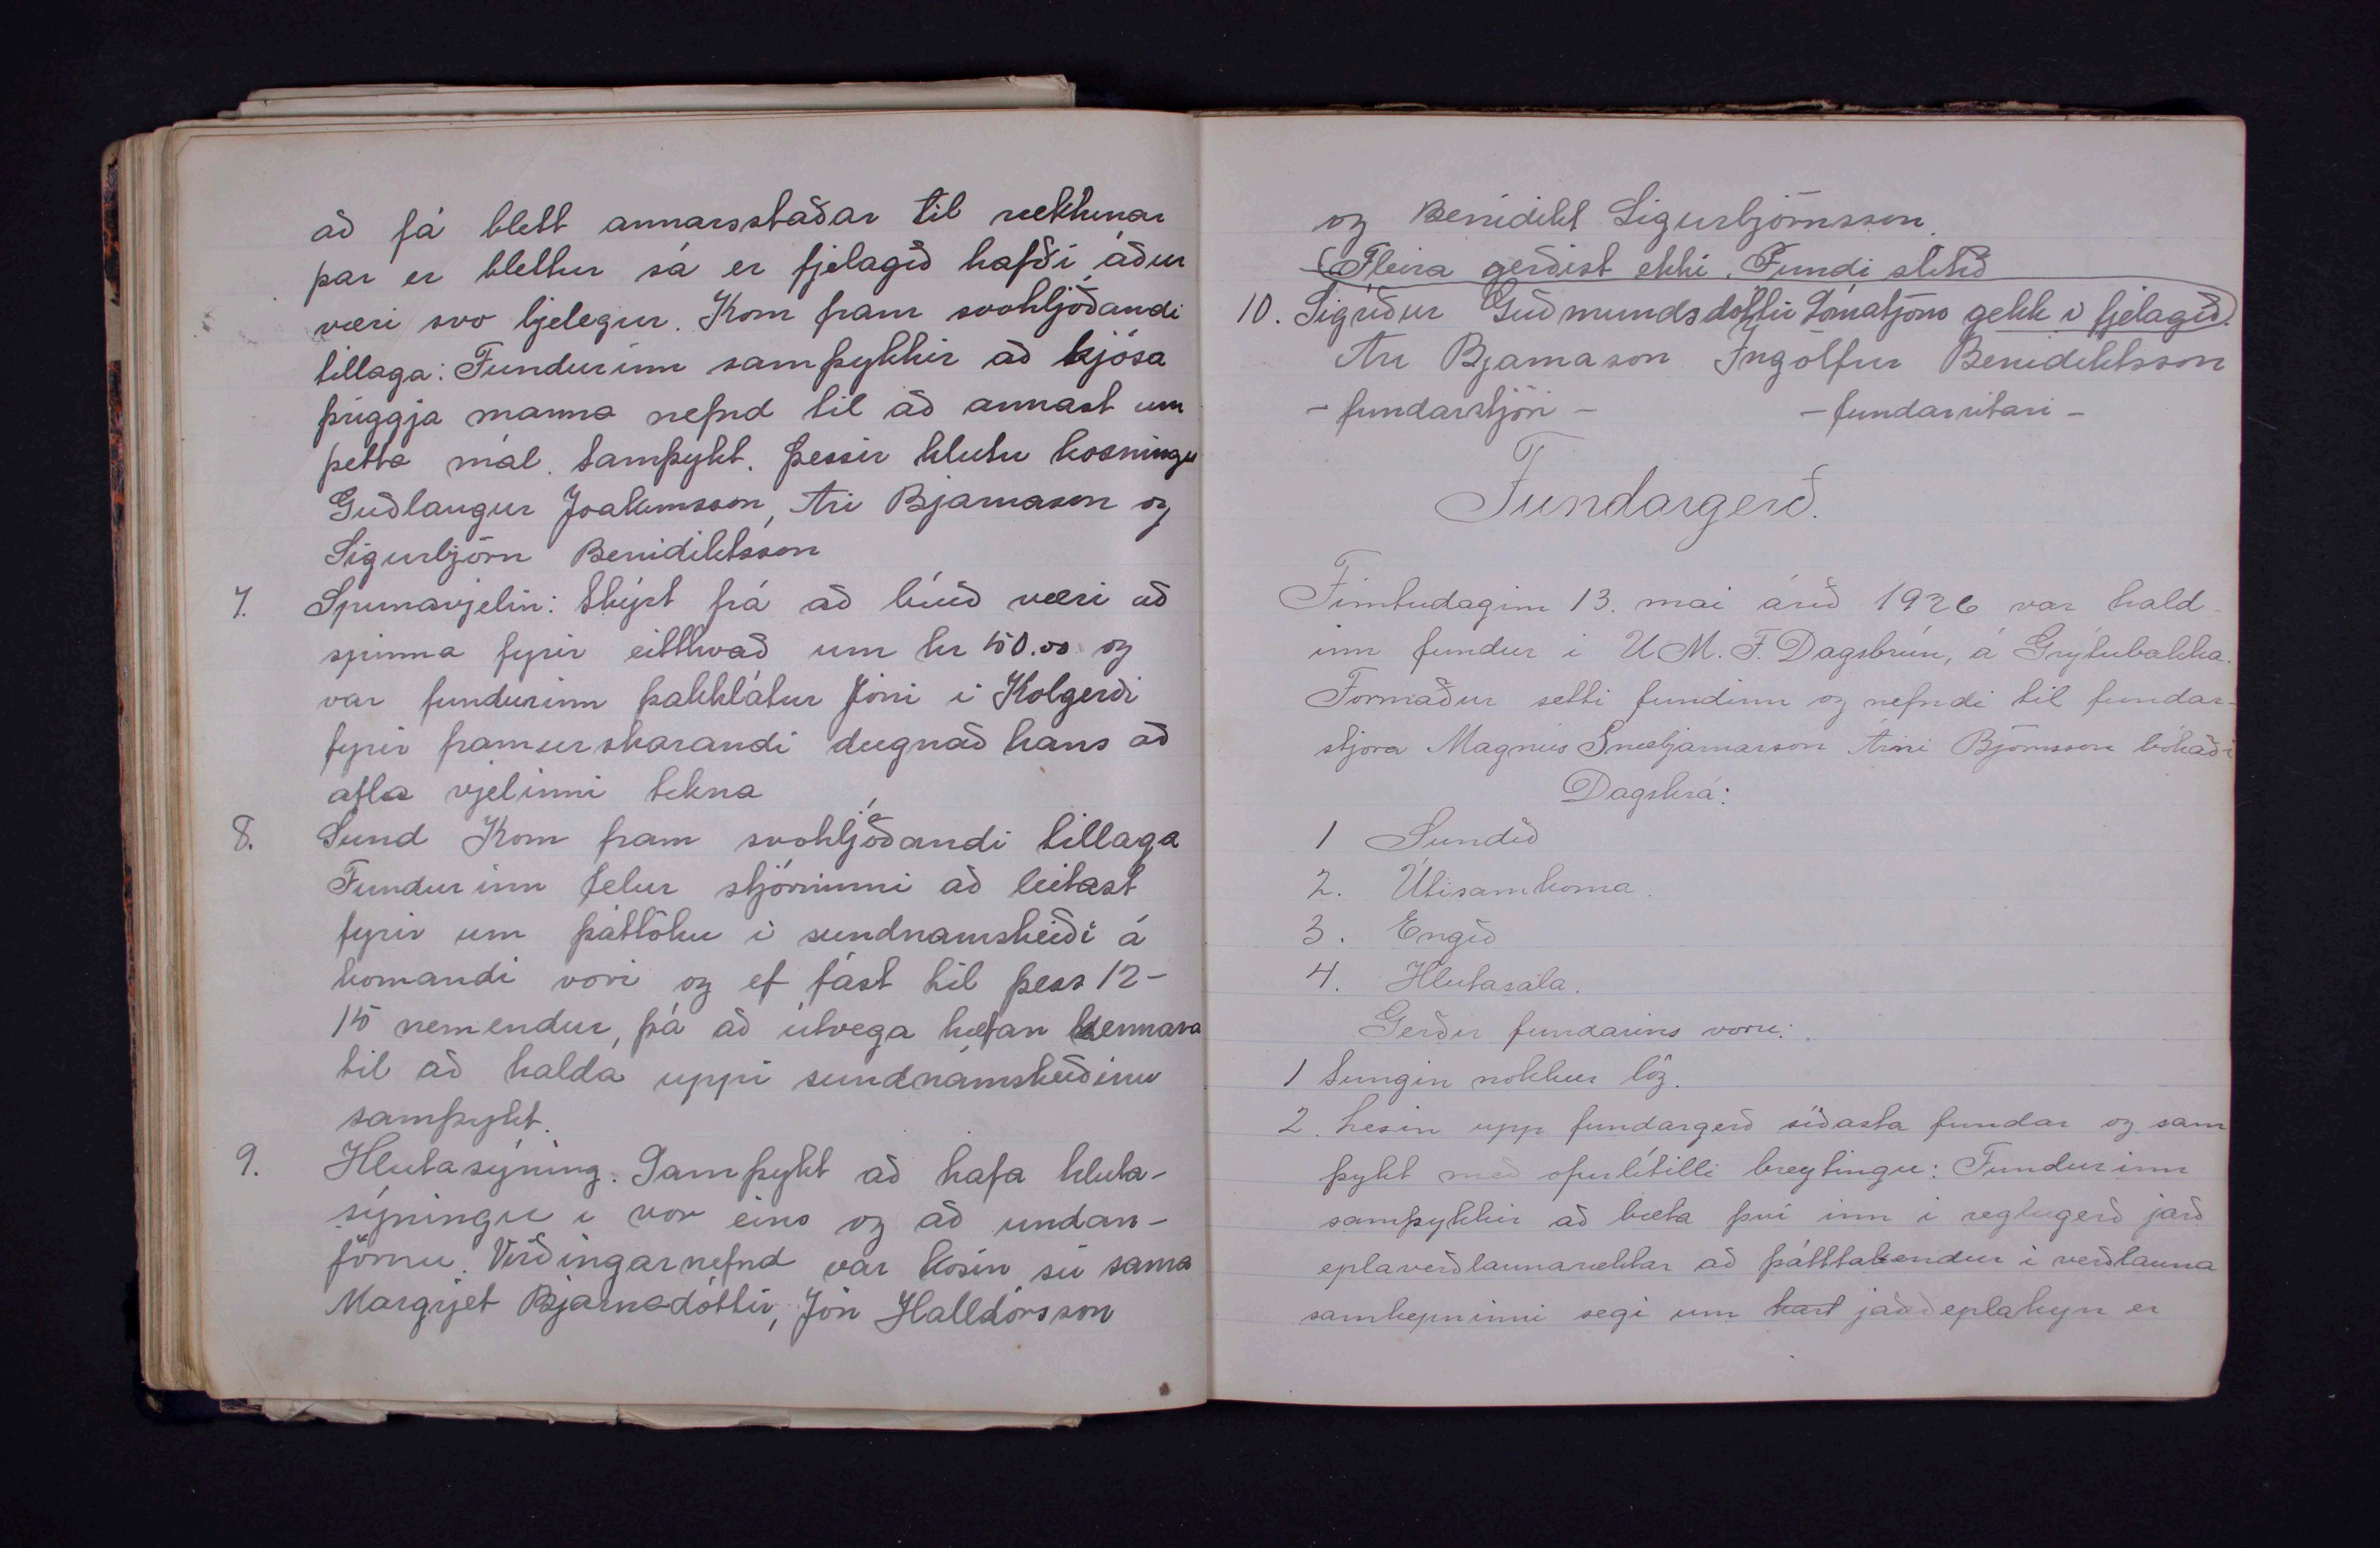 að fá blett annarsstaðar til ræktunar
þar er blettur sá er fjelagið hafði áður
væri svo ljelegur. Kom fram svohljóðandi
tillaga: Fundurinn samþykkir að kjósa
þriggja manna nefnd til að annast um
þetta mál. Samþykt. Þessir hlutu kosningu
Guðlaugur Joakimsson, Ari Bjarnason og
Sigurbjörn Benidiktsson
7. Spunavjelin: Skýrt frá að búið væri að
spinna fyrir eitthvað um kr 50.00 og
var fundurinn þakklátur Jóni í Kolgerði
fyrir framúrskarandi dugnað hans að
afla vjelinni tekna
8. Sund Kom fram svohljóðandi tillaga
Fundurinn felur stjórninni að leitast
fyrir um þáttöku í sundnamskeiði á
komandi vori og ef fást til þess 12-
15 nemendur, þá að útvega hæfan kennara
til að halda uppi sundnámskeiðinu
samþykt.
9. Hlutasýning. Samþykt að hafa hluta-
sýningu í vor eins og að undan-
förnu. Virðingarnefnd var kosin sú sama
Margrjet Bjarnadóttir, Jón Halldórsson
og Benidikt Sigurbjörnsson.
Fleira gerðist ekki. Fundi slitið
10. Sigríður Guðmundsdóttir Lómatjörn gekk í fjelagið.
Ari Bjarnason Ingólfur Benidiktsson
- fundarstjóri - - fundarritari -
Fundargerð.
Fimtudaginn 13. mai árið 1926 var hald-
inn fundur i U.M.F. Dagsbrún, á Grýtubakka.
Formaður setti fundinn og nefndi til fundar-
stjora Magnús Snæbjarnarson Árni Björnsson bókaði
Dagskrá:
1 Sundið
2. Útisamkoma.
3. Engið
4. Hlutasala.
Gerðir fundarins voru:
1 Sungin nokkur lög.
2. Lesin upp fundargerð síðasta fundar og sam
þykt með ofurlítilli breytingu: Fundurinn
samþykkir að bæta því inn i reglugerð jarð
eplaverðlaunaræktar að þátttakendur i verðlauna
samkepninni segi um hart jarðeplakyn er